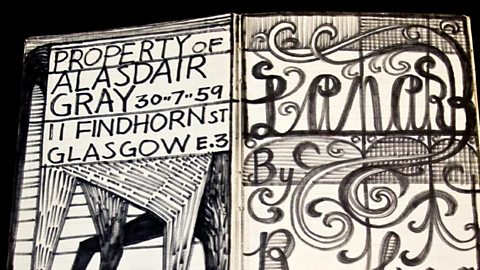 PROPERTY OF
ALASDAIR
GRAY 30··7··59
11 FINDHORN ST
GLASGOW E.3
Lanark
By